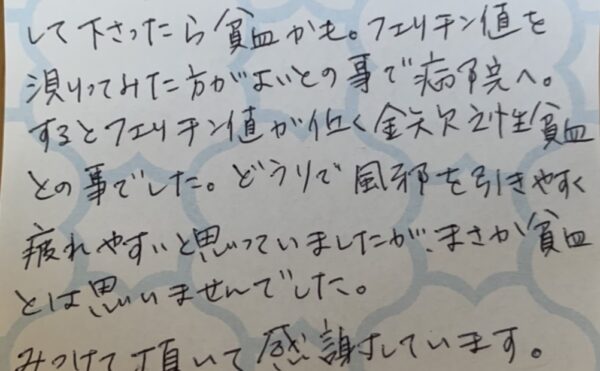 して下さったら貧血かも。フェリチン値を
測ってみた方がよいとの事で病院へ。
するとフェリチン値が低く鉄欠乏性貧血
との事でした。どうりで風邪を引きやすく
疲れやすいと思っていましたが、まさか貧血
とは思いませんでした。
みつけて頂いて感謝しています。